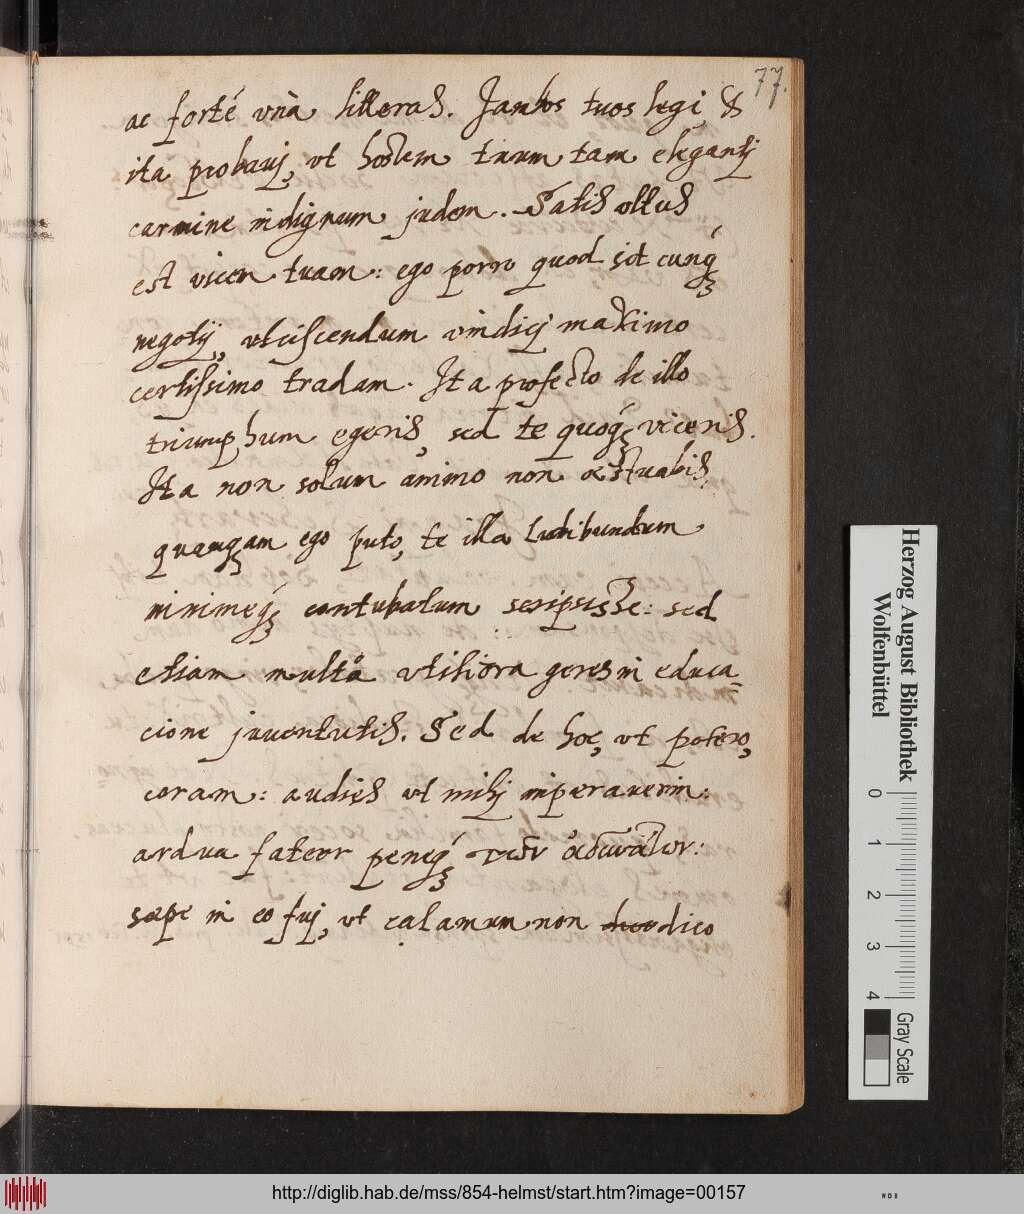 77.
ac forté vnà litteras. Jambos tuos legi, &
ita probauj, vt hostem tuum tam elegantj
carmine indignum judem. Satis vltus
est vicen tuam: ego porro quod sit cunq́;
negotij, vlciscendum vindicj maximo
certissimo tradam. Ita profecto de illo
triumphum egeris, sed te quoq́; viceris.
Ita non solum animo non æstuabis,
quanqam ego puto, te illa Ludibundum
minimeq́; conturbatum scripsisse: sed
etiam multa vtiliora geres in educa=
cione juuentutis. Sed de hoc, vt potero,
coram: audies vt mihj imperauerim:
ardua fateor peneq́;
sæpe in eo fuj, vt calamum non dico
Herzog August Bibliothek
Wolfenbüttel
0 1 2 3 4
Gray Scale
http://diglib.hab.de/mss/854-helmst/start.htm?image=00157
WDB